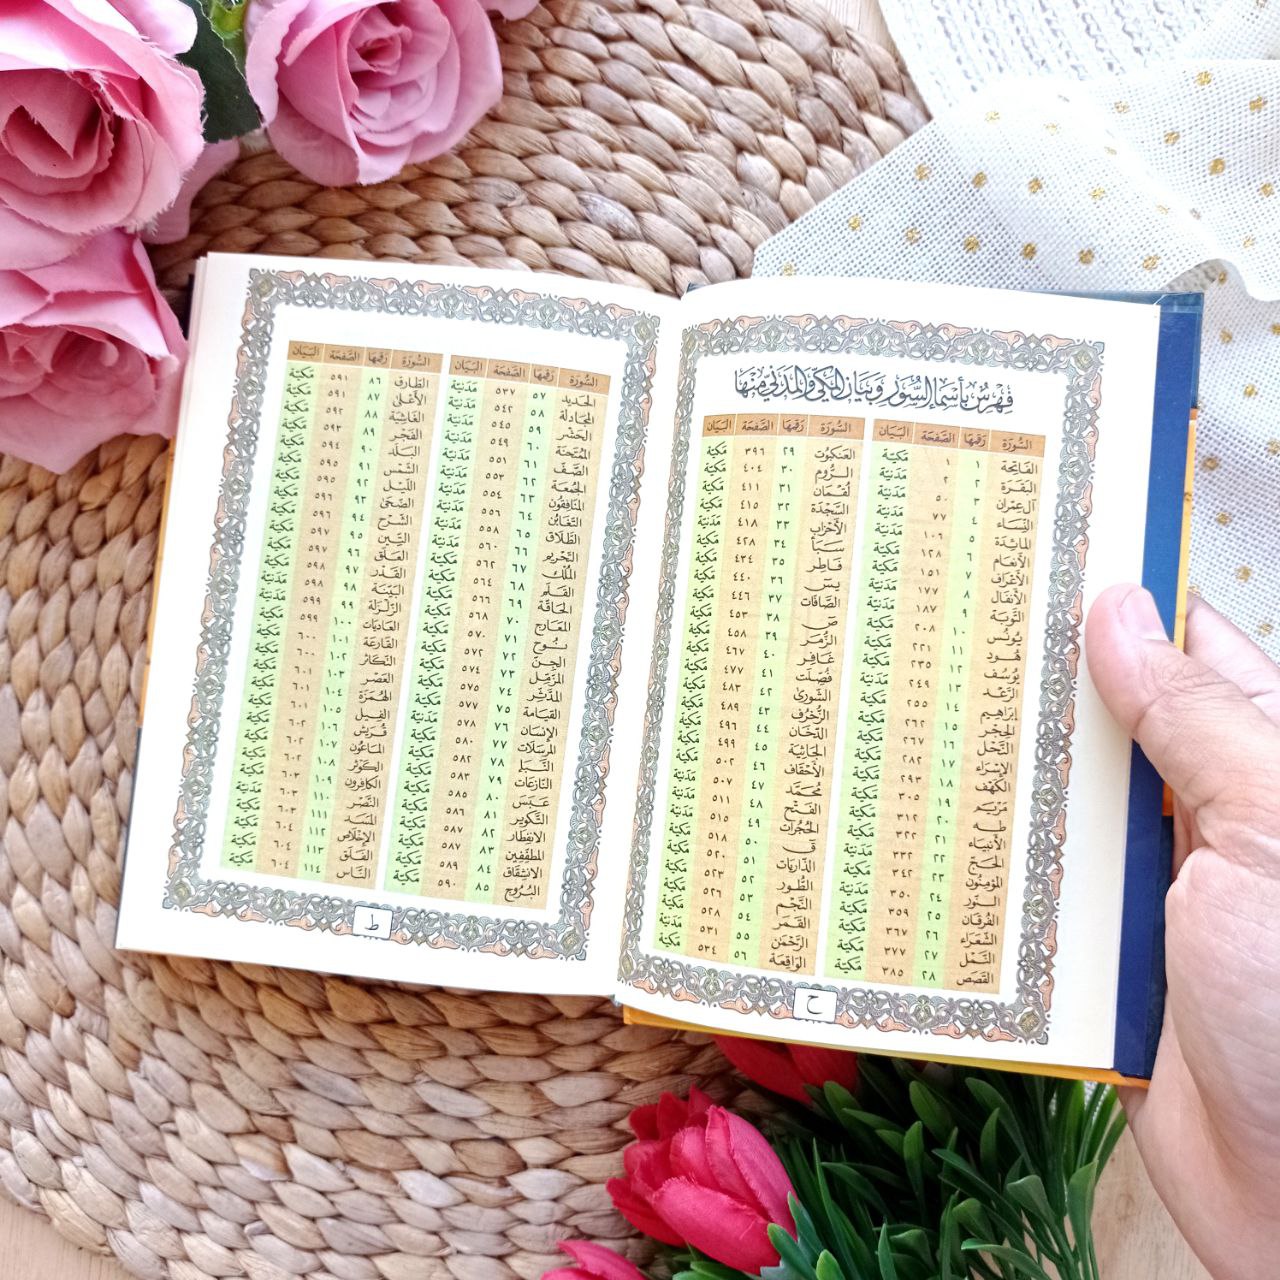 فهرس بأسماء السور وبيان المكي والمدني منها
السُّورَة رَقمهَا الصَّفحَة البَيَان
الفَاتِحَة ١ ١ مَكيّة
البَقَرَة ٢ ٢ مَدَنيّة
آل عِمرَان ٣ ٥٠ مَدَنيّة
النِّسَاء ٤ ٧٧ مَدَنيّة
المَائدة ٥ ١٠٦ مَدَنيّة
الأنعَام ٦ ١٢٨ مَكيّة
الأعرَاف ٧ ١٥١ مَكيّة
الأنفَال ٨ ١٧٧ مَدَنيّة
التّوبَة ٩ ١٨٧ مَدَنيّة
يُونس ١٠ ٢٠٨ مَكيّة
هُود ١١ ٢٢١ مَكيّة
يُوسُف ١٢ ٢٣٥ مَكيّة
الرّعد ١٣ ٢٤٩ مَدَنيّة
إبراهِيم ١٤ ٢٥٥ مَكيّة
الحِجر ١٥ ٢٦٢ مَكيّة
النّحل ١٦ ٢٦٧ مَكيّة
الإسرَاء ١٧ ٢٨٢ مَكيّة
الكهف ١٨ ٢٩٣ مَكيّة
مَريَم ١٩ ٣٠٥ مَكيّة
طه ٢٠ ٣١٢ مَكيّة
الأنبيَاء ٢١ ٣٢٢ مَكيّة
الحَجّ ٢٢ ٣٣٢ مَدَنيّة
المؤمنُون ٢٣ ٣٤٢ مَكيّة
النّور ٢٤ ٣٥٠ مَدَنيّة
الفُرقان ٢٥ ٣٥٩ مَكيّة
الشّعَرَاء ٢٦ ٣٦٧ مَكيّة
النّمل ٢٧ ٣٧٧ مَكيّة
القَصَص ٢٨ ٣٨٥ مَكيّة
السُّورَة رَقمهَا الصَّفحَة البَيَان
العَنكبوت ٢٩ ٣٩٦ مَكيّة
الرُّوم ٣٠ ٤٠٤ مَكيّة
لُقمَان ٣١ ٤١١ مَكيّة
السَّجدَة ٣٢ ٤١٥ مَكيّة
الأحزَاب ٣٣ ٤١٨ مَدَنيّة
سَبَأ ٣٤ ٤٢٨ مَكيّة
فَاطِر ٣٥ ٤٣٤ مَكيّة
يسٓ ٣٦ ٤٤٠ مَكيّة
الصَّافات ٣٧ ٤٤٦ مَكيّة
صٓ ٣٨ ٤٥٣ مَكيّة
الزُّمَر ٣٩ ٤٥٨ مَكيّة
غَافِر ٤٠ ٤٦٧ مَكيّة
فُصِّلَت ٤١ ٤٧٧ مَكيّة
الشّورى ٤٢ ٤٨٣ مَكيّة
الزّخرُف ٤٣ ٤٨٩ مَكيّة
الدّخَان ٤٤ ٤٩٦ مَكيّة
الجَاثِيَة ٤٥ ٤٩٩ مَكيّة
الأحقاف ٤٦ ٥٠٢ مَكيّة
مُحَمَّد ٤٧ ٥٠٧ مَدَنيّة
الفَتح ٤٨ ٥١١ مَدَنيّة
الحُجرَات ٤٩ ٥١٥ مَدَنيّة
قٓ ٥٠ ٥١٨ مَكيّة
الذّاريَات ٥١ ٥٢٠ مَكيّة
الطُّور ٥٢ ٥٢٣ مَكيّة
النّجم ٥٣ ٥٢٦ مَكيّة
القَمَر ٥٤ ٥٢٨ مَكيّة
الرَّحمٰن ٥٥ ٥٣١ مَدَنيّة
الوَاقِعَة ٥٦ ٥٣٤ مَكيّة
ح
السُّورَة رَقمهَا الصَّفحَة البَيَان
الحَديد ٥٧ ٥٣٧ مَدَنيّة
المجَادلة ٥٨ ٥٤٢ مَدَنيّة
الحَشر ٥٩ ٥٤٥ مَدَنيّة
المُمتَحنَة ٦٠ ٥٤٩ مَدَنيّة
الصَّف ٦١ ٥٥١ مَدَنيّة
الجُمعَة ٦٢ ٥٥٣ مَدَنيّة
المنَافِقون ٦٣ ٥٥٤ مَدَنيّة
التغَابُن ٦٤ ٥٥٦ مَدَنيّة
الطّلَاق ٦٥ ٥٥٨ مَدَنيّة
التّحريم ٦٦ ٥٦٠ مَدَنيّة
المُلك ٦٧ ٥٦٢ مَكيّة
القَلَم ٦٨ ٥٦٤ مَكيّة
الحَاقّة ٦٩ ٥٦٦ مَكيّة
المعَارج ٧٠ ٥٦٨ مَكيّة
نُوح ٧١ ٥٧٠ مَكيّة
الجِن ٧٢ ٥٧٢ مَكيّة
المزّمِّل ٧٣ ٥٧٤ مَكيّة
المدَّثِّر ٧٤ ٥٧٥ مَكيّة
القيَامَة ٧٥ ٥٧٧ مَكيّة
الإنسَان ٧٦ ٥٧٨ مَدَنيّة
المرسَلات ٧٧ ٥٨٠ مَكيّة
النّبَإ ٧٨ ٥٨٢ مَكيّة
النّازعَات ٧٩ ٥٨٣ مَكيّة
عَبَسَ ٨٠ ٥٨٥ مَكيّة
التّكوير ٨١ ٥٨٦ مَكيّة
الانفِطار ٨٢ ٥٨٧ مَكيّة
المطفّفِين ٨٣ ٥٨٧ مَكيّة
الانشِقَاق ٨٤ ٥٨٩ مَكيّة
البُروج ٨٥ ٥٩٠ مَكيّة
السُّورَة رَقمهَا الصَّفحَة البَيَان
الطّارق ٨٦ ٥٩١ مَكيّة
الأعلى ٨٧ ٥٩١ مَكيّة
الغَاشِيَة ٨٨ ٥٩٢ مَكيّة
الفَجر ٨٩ ٥٩٣ مَكيّة
البَلَد ٩٠ ٥٩٤ مَكيّة
الشّمس ٩١ ٥٩٥ مَكيّة
اللّيل ٩٢ ٥٩٥ مَكيّة
الضّحى ٩٣ ٥٩٦ مَكيّة
الشّرح ٩٤ ٥٩٦ مَكيّة
التّين ٩٥ ٥٩٧ مَكيّة
العَلق ٩٦ ٥٩٧ مَكيّة
القَدر ٩٧ ٥٩٨ مَكيّة
البَيّنَة ٩٨ ٥٩٨ مَدَنيّة
الزّلزَلة ٩٩ ٥٩٩ مَدَنيّة
العَاديَات ١٠٠ ٥٩٩ مَكيّة
القَارعَة ١٠١ ٦٠٠ مَكيّة
التّكاثُر ١٠٢ ٦٠٠ مَكيّة
العَصر ١٠٣ ٦٠١ مَكيّة
الهُمَزَة ١٠٤ ٦٠١ مَكيّة
الفِيل ١٠٥ ٦٠١ مَكيّة
قُرَيش ١٠٦ ٦٠٢ مَكيّة
الماعُون ١٠٧ ٦٠٢ مَكيّة
الكَوثَر ١٠٨ ٦٠٢ مَكيّة
الكافِرون ١٠٩ ٦٠٣ مَكيّة
النّصر ١١٠ ٦٠٣ مَدَنيّة
المَسَد ١١١ ٦٠٣ مَكيّة
الإخلَاص ١١٢ ٦٠٤ مَكيّة
الفَلَق ١١٣ ٦٠٤ مَكيّة
النّاس ١١٤ ٦٠٤ مَكيّة
ط